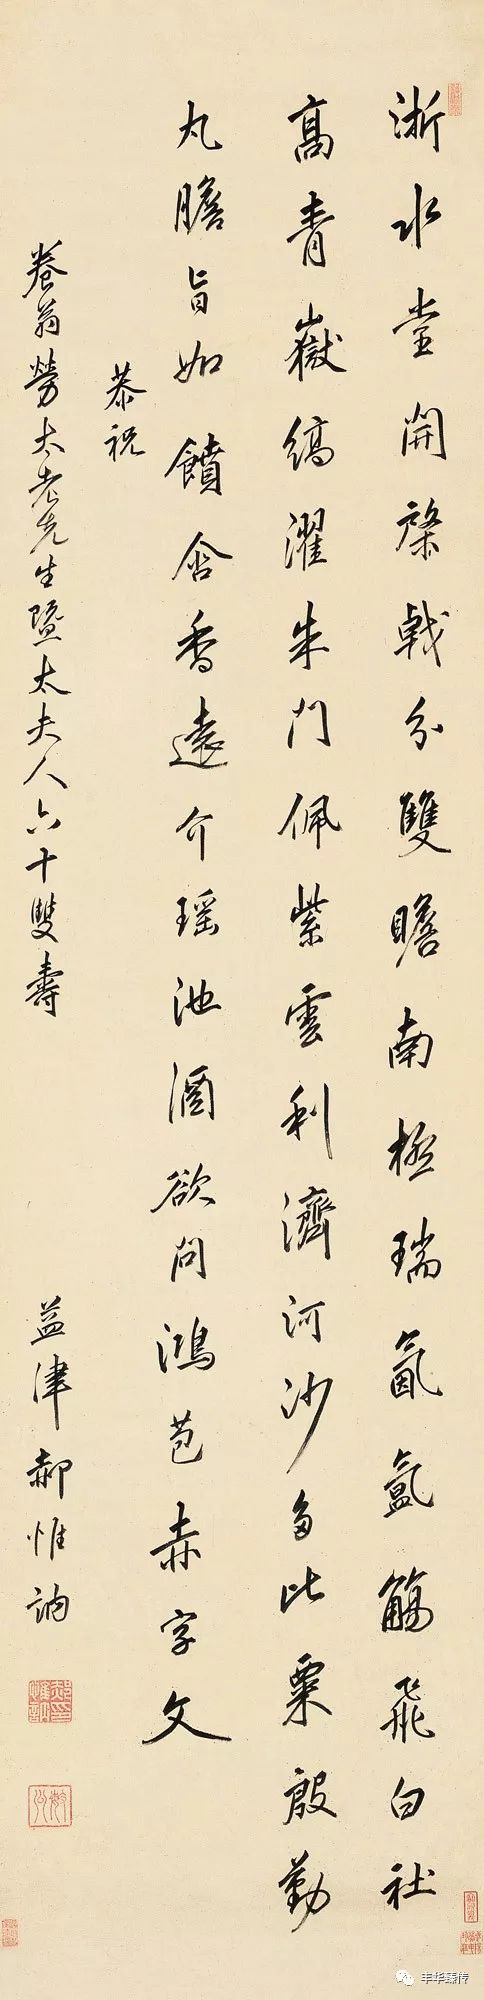 浙水堂開棨戟分雙瞻南極瑞氤氳觴飛白社
高青嶽綺濯朱門佩紫雲利濟河沙多比粟殷勤
丸膽旨如饋含香遠介瑤池酒欲問鴻苞赤字文
恭祝
養翁勞太老先生暨太夫人六十雙壽
益津郝惟訥
丰华臻传